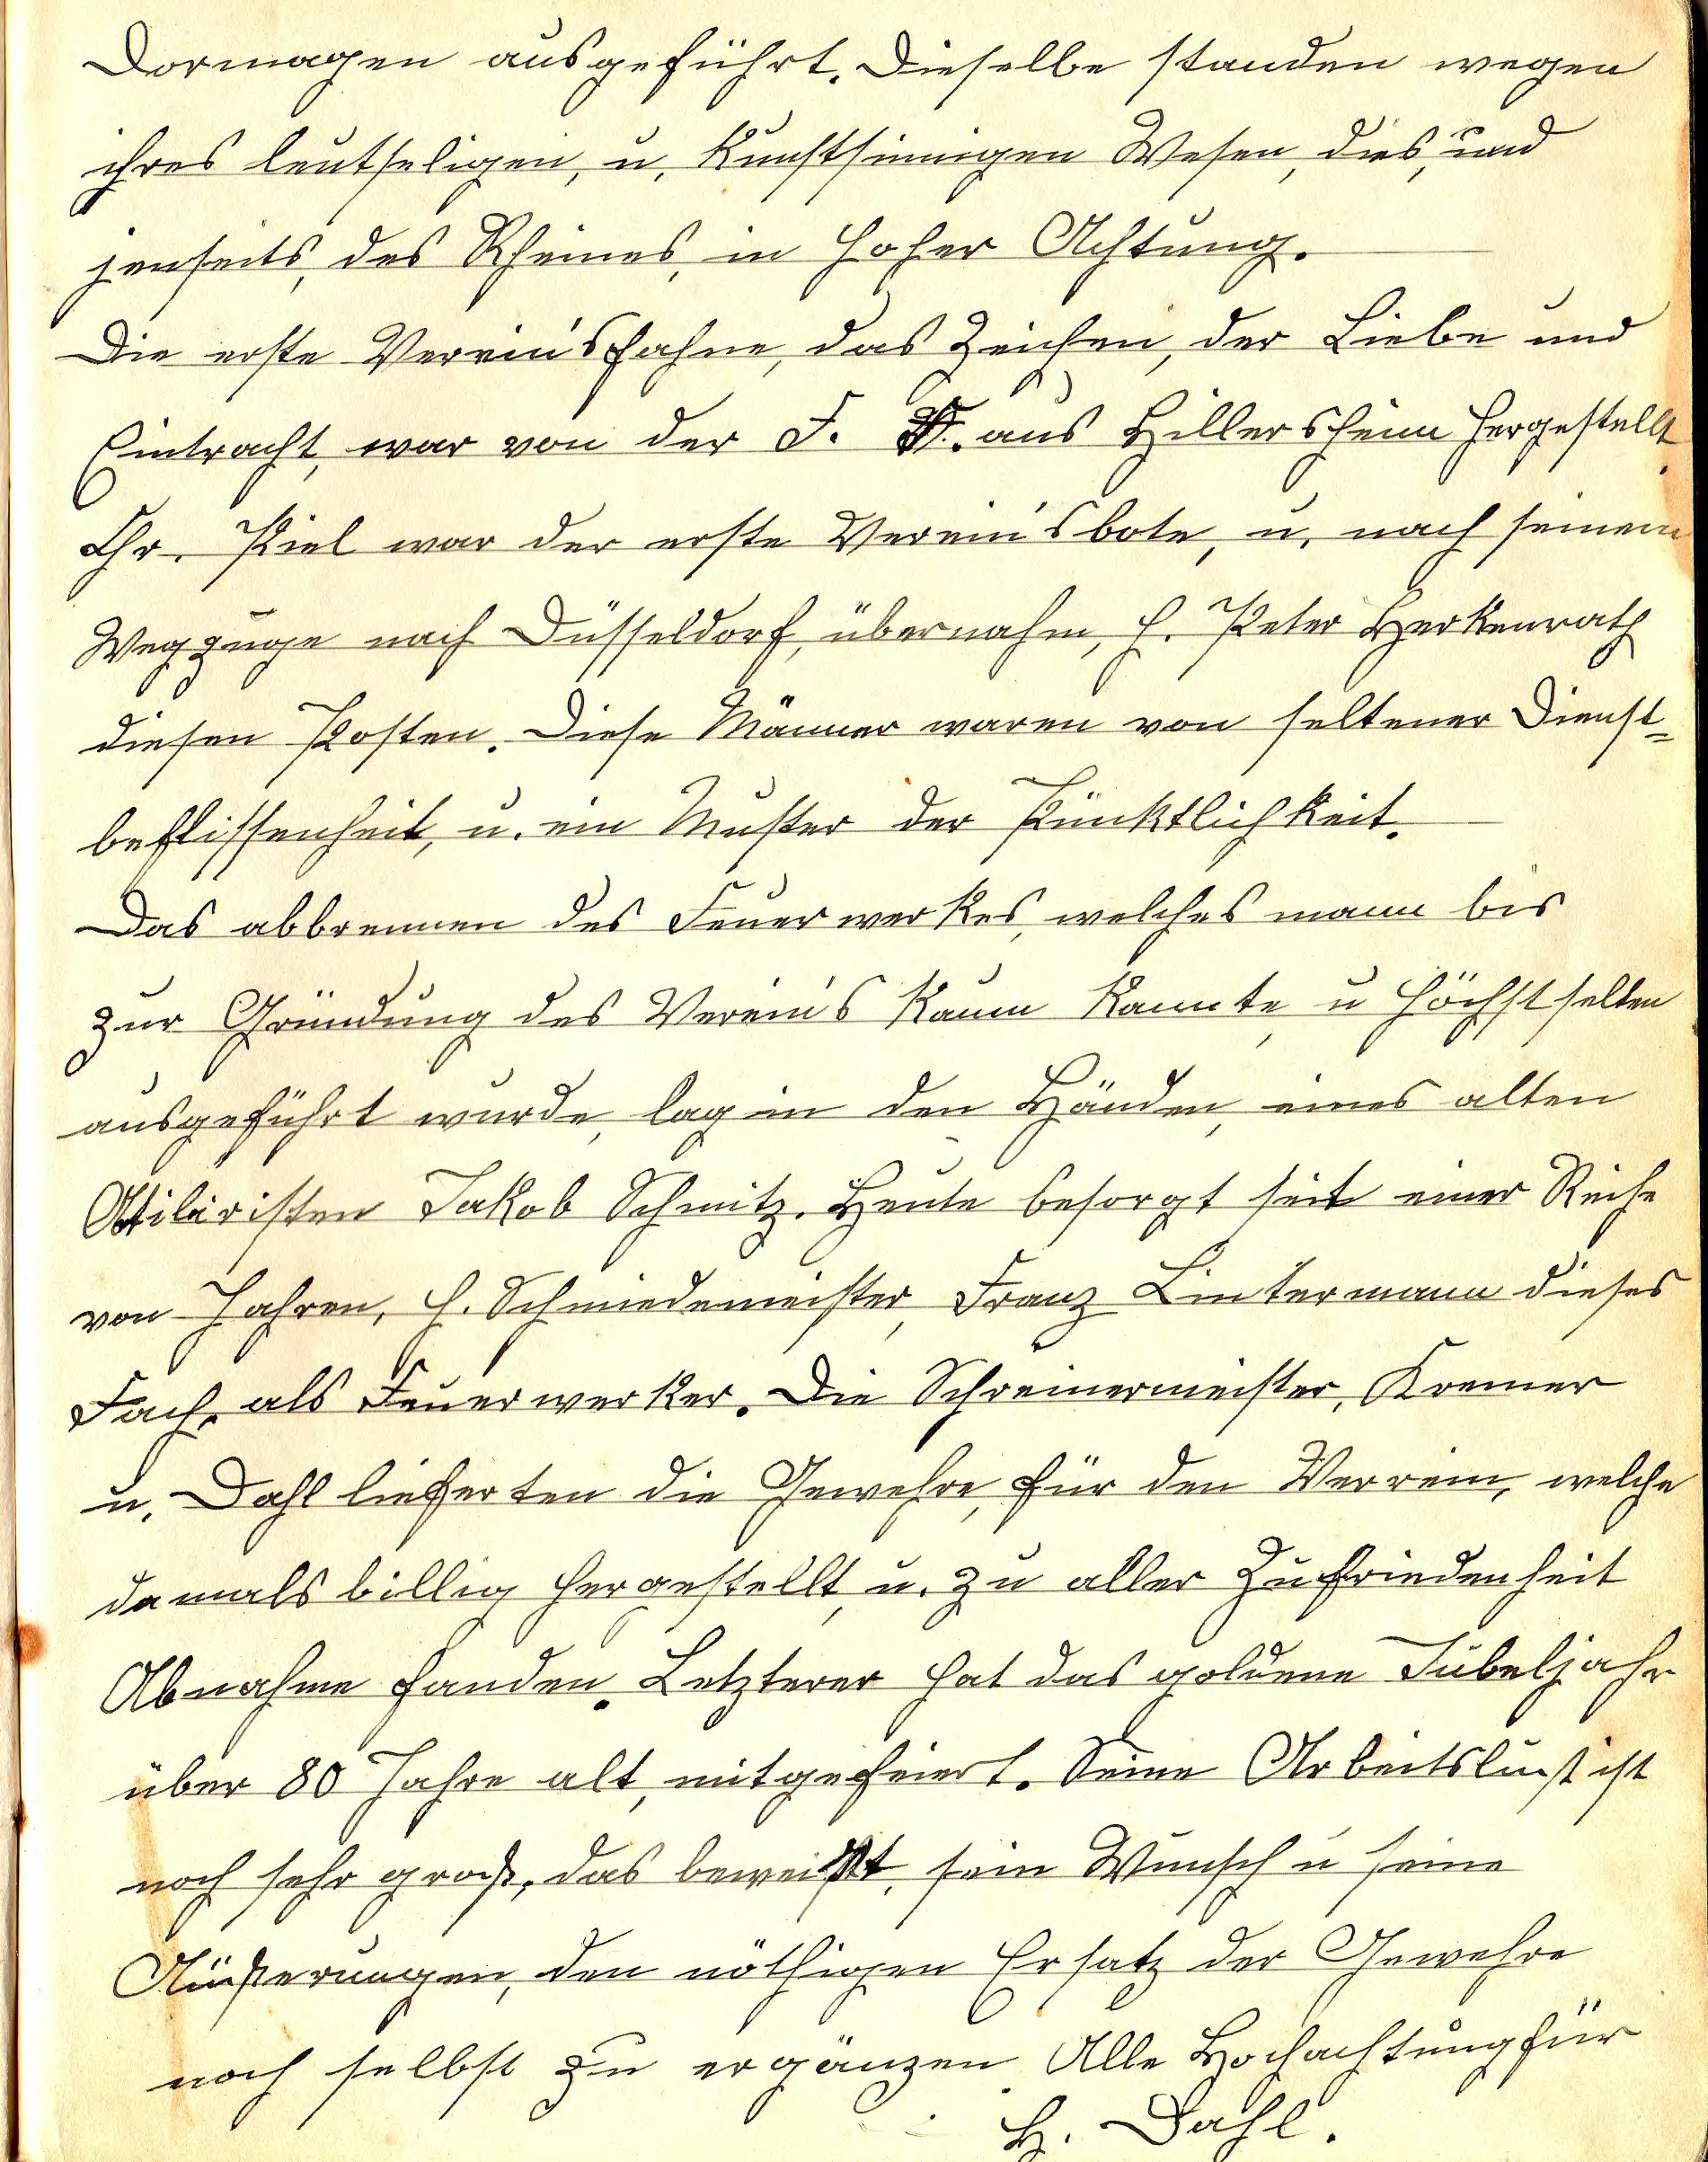 Dormagen ausgeführt. Dieselbe standen wegen
ihres leutseligen, u. kunstsinnigen Wesen, dies, und
jenseits, des Rheines, in hoher Achtung.
Die erste Verein's fahne, das Zeichen, der Liebe und
Eintracht, war von der F. aus Hillersheim hergestellt.
Chr. Kiel war der erste Verein's bote, u. nach seinem
Wegzuge nach Düsseldorf, übernahm, H. Peter Herkenrath
diesen Posten. Diese Männer waren von seltener Dienst=
beflissenheit, u. ein Muster der Pünktlichkeit.
Das abbrennen des Feuerwerkes, welches mann bis
zur Gründung des Verein's kaum kannte, u höchst selten
ausgeführt wurde, lag in den Händen, eines alten
Atiläristen Jakob Schmitz. Heute besorgt seit einer Reihe
von Jahren, H. Schmiedemeister, Franz Lintermann dieses
Fach, als Feuerwerker. Die Schreinermeister, Kremer
u. Dahl lieferten die Gewehre, für den Verrein, welche
damals billig hergestellt, u. zu aller Zufriedenheit
Abnahme fanden. Letzterer hat das goldene Jubeljahr
über 80 Jahre alt, mitgefeiert. Seine Arbeitslust ist
noch sehr groß, das beweißt, sein Wunsch u seine
Äußerungen, den nöthigen Ersatz der Gewehre
noch selbst zu ergänzen. Alle Hochachtung für
H. Dahl.